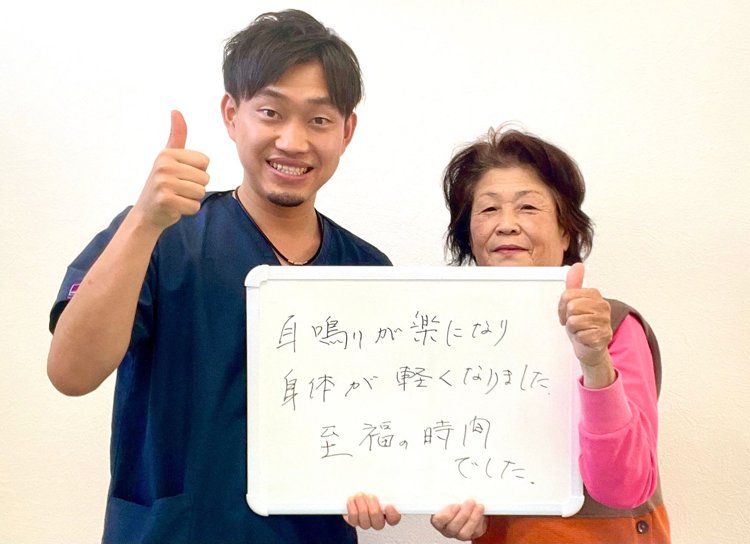 耳鳴りが楽になり
身体が軽くなりました
至福の時間
でした。